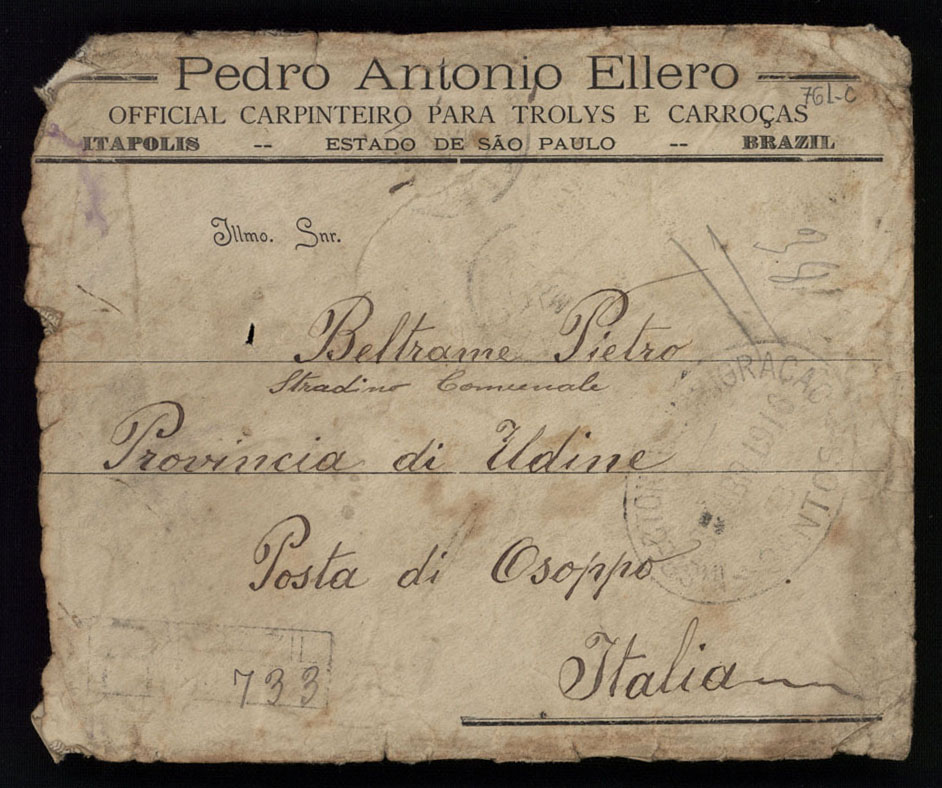 Pedro Antonio Ellero
761-C
OFFICIAL CARPINTEIRO PARA TROLYS E CARROÇAS
ITAPOLIS -- ESTADO DE SÃO PAULO -- BRAZIL
Illmo. Snr.
Beltrame Pietro
Stradino Comunale
Provincia di Udine
Posta di Osoppo
Italia
733